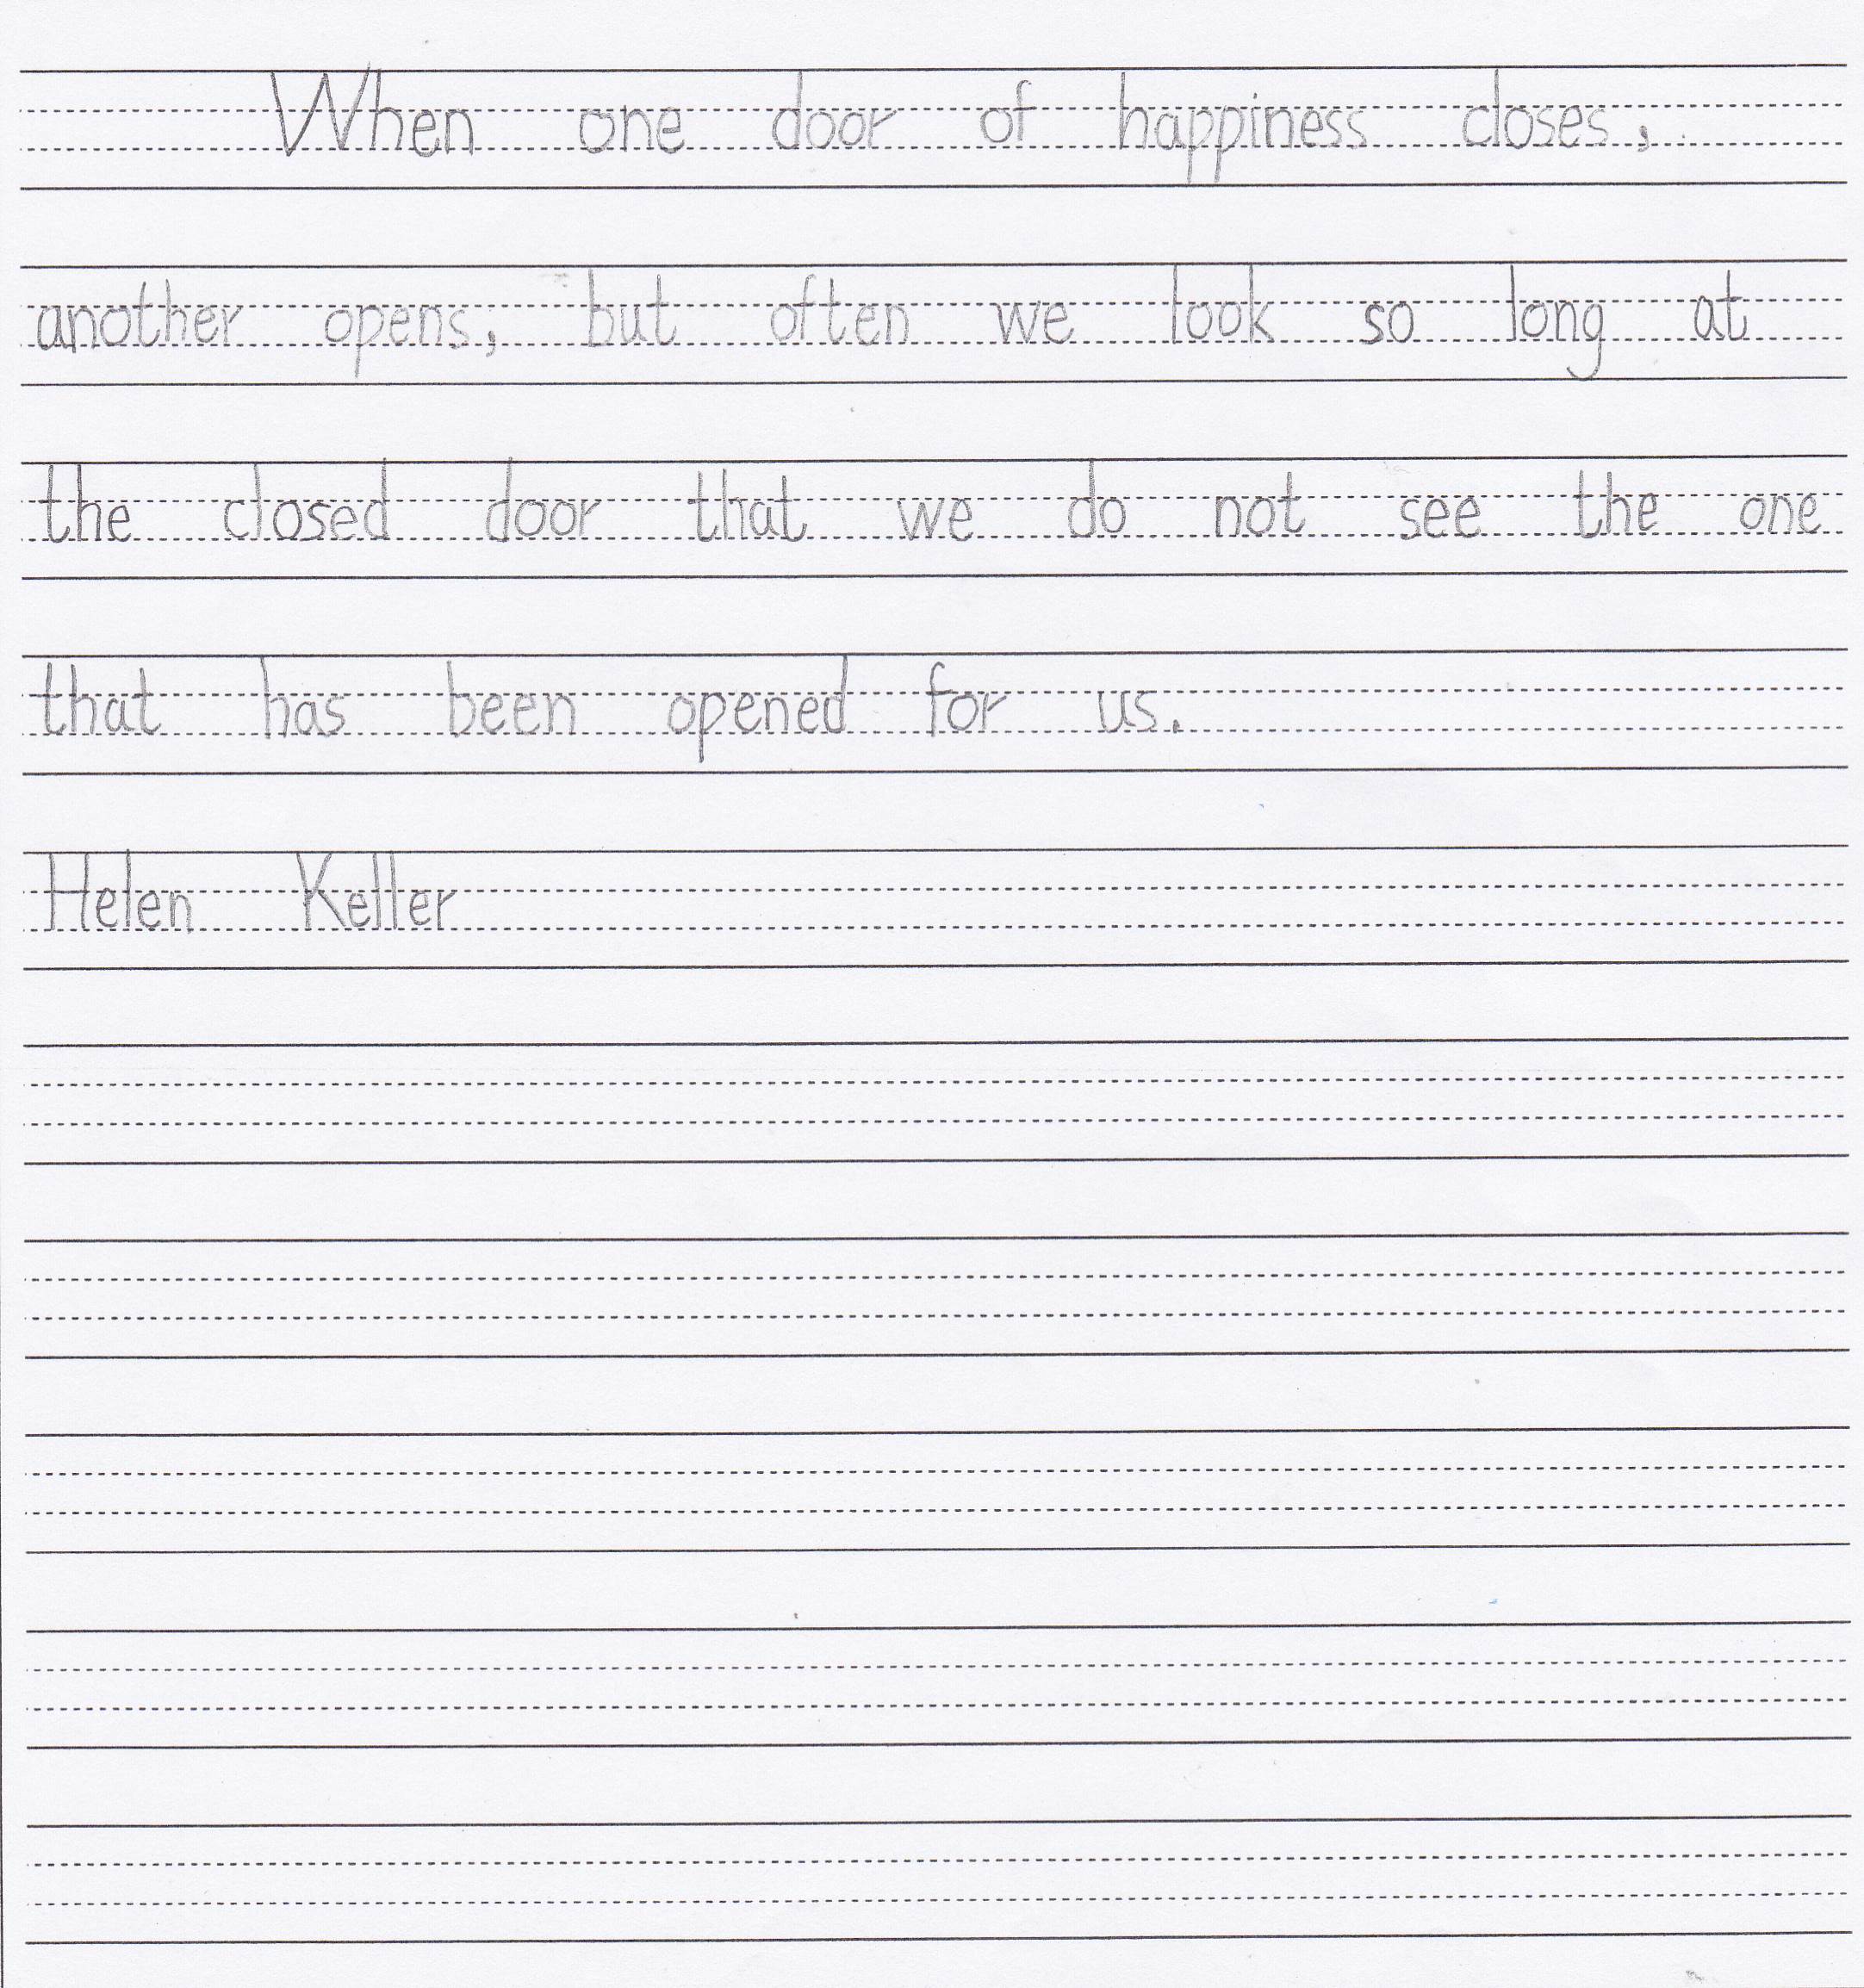 When one door of happiness closes,
another opens; but often we look so long at
the closed door that we do not see the one
that has been opened for us.
Helen Keller